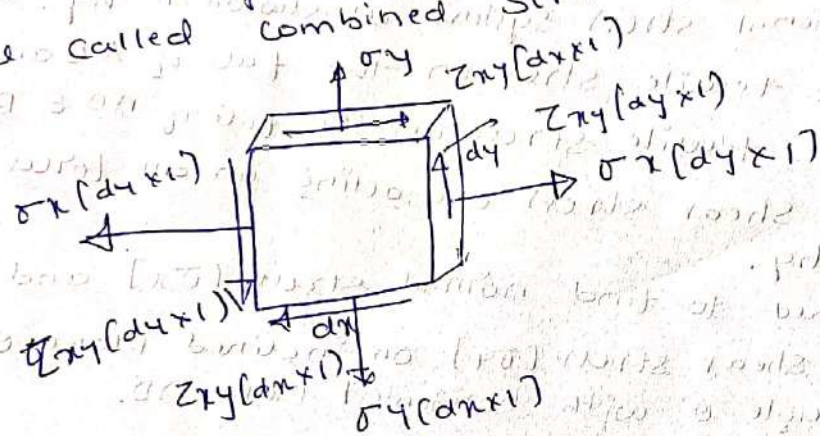 e called combined
σy
τxy(dx×1)
τxy(dy×1)
dy
σx(dy×1)
σx(dy×1)
τxy(dy×1)
dx
τxy(dx×1)
σy(dx×1)